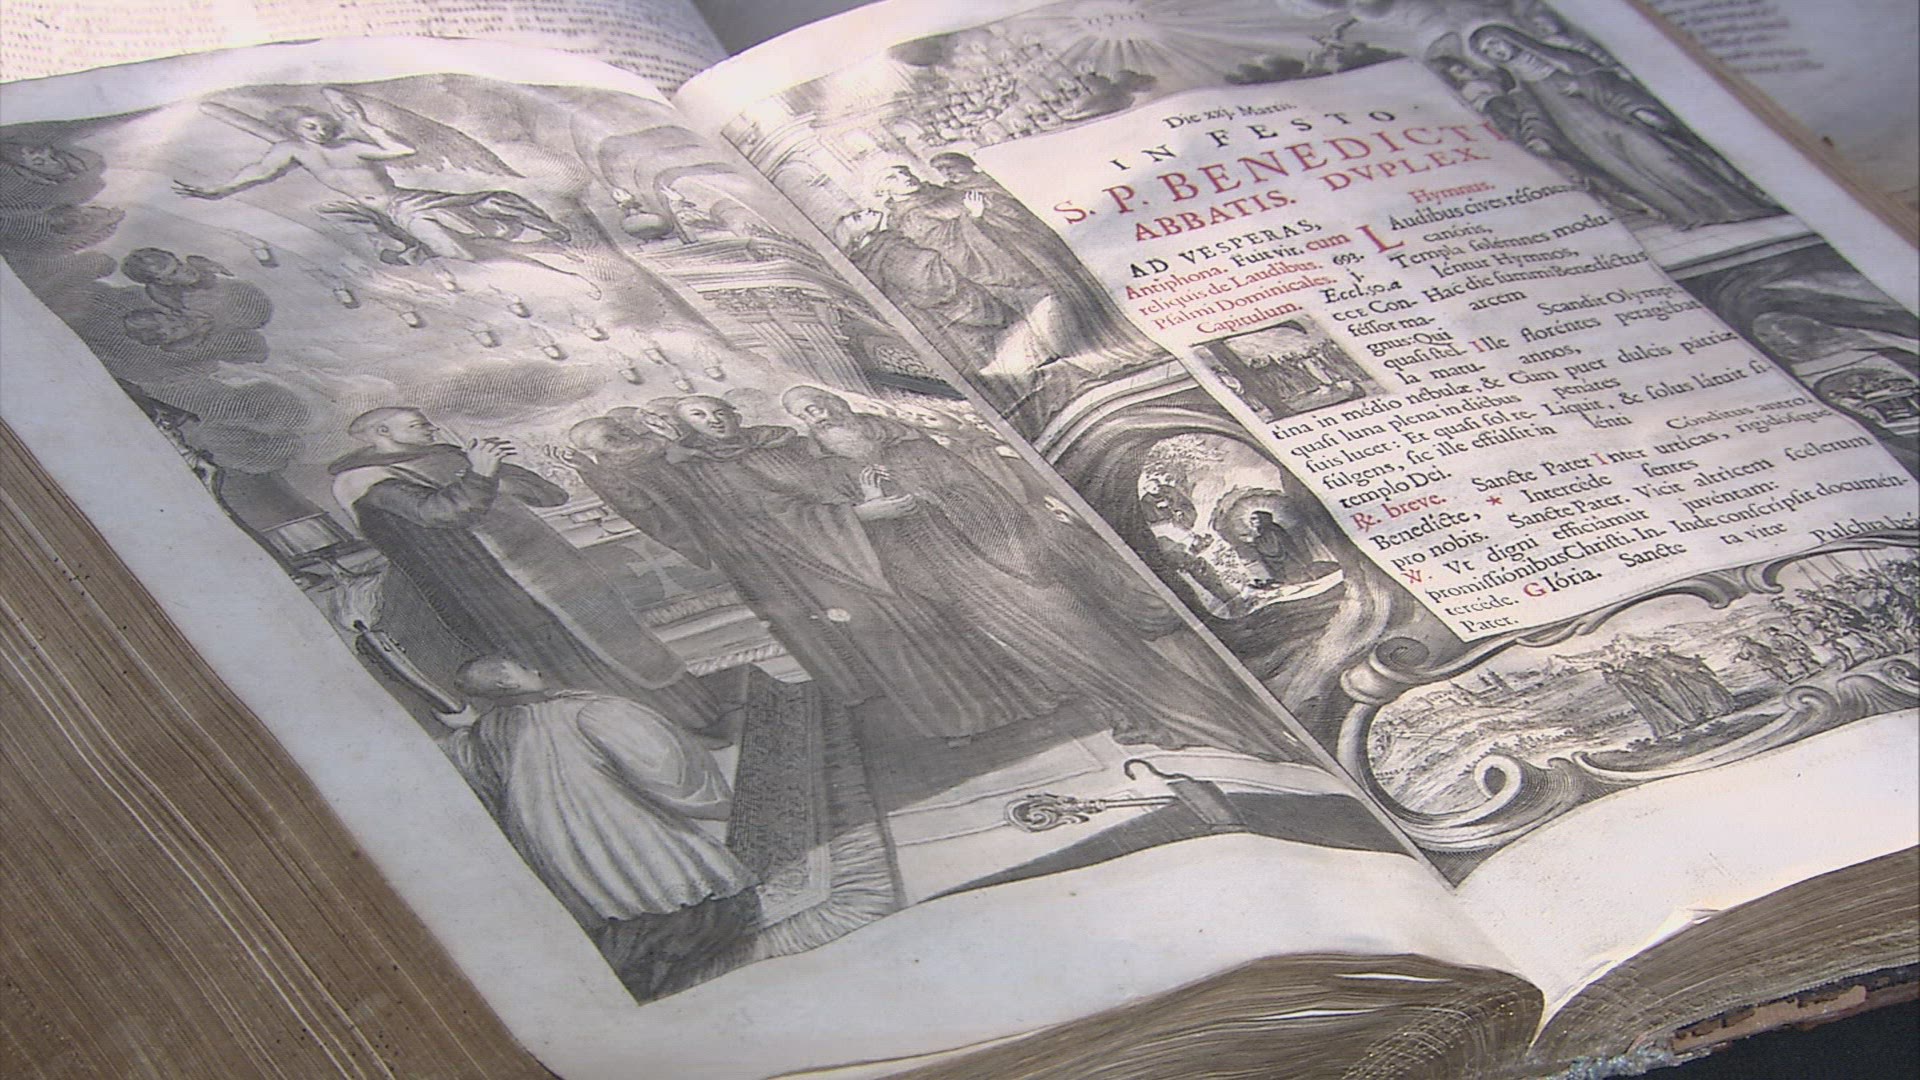 Die xxj. Martii.
IN FESTO
S. P. BENEDICTI
ABBATIS. DVPLEX.
AD VESPERAS,
Antiphona. Fuit vir. cum
reliquis de Laudibus. 693.
Psalmi Dominicales.
Capitulum.
j.
Eccl. 50. a
CCE Con-
féssor ma-
gnus: Qui
quasi stel-
la matu-
tina in médio nébulæ, &
quasi luna plena in diébus
suis lucet: Et quasi sol re-
fúlgens, sic ille effúlsit in
templo Dei.
℟. breve. Sancte Pater
Benedícte, * Intercéde
pro nobis. Sancte Pater.
℣. Vt digni efficiamur
promissiónibus Christi. In-
tercéde. Glória. Sancte
Pater.
Hymnus.
LAudibus cives résonent
canóris,
Templa solémnes modu-
léntur Hymnos,
Hac die summi Benedíctus
arcem
Scandit Olympi.
Ille floréntes peragébat
annos,
Cùm puer dulcis pátriæ
penátes
Liquit, & solus látuit si-
lénti
Cónditus antro.
Inter urticas, rigidósque
sentes
Vicit altrícem scélerum
juvéntam:
Inde conscrípsit documén-
ta vitæ
Pulchra